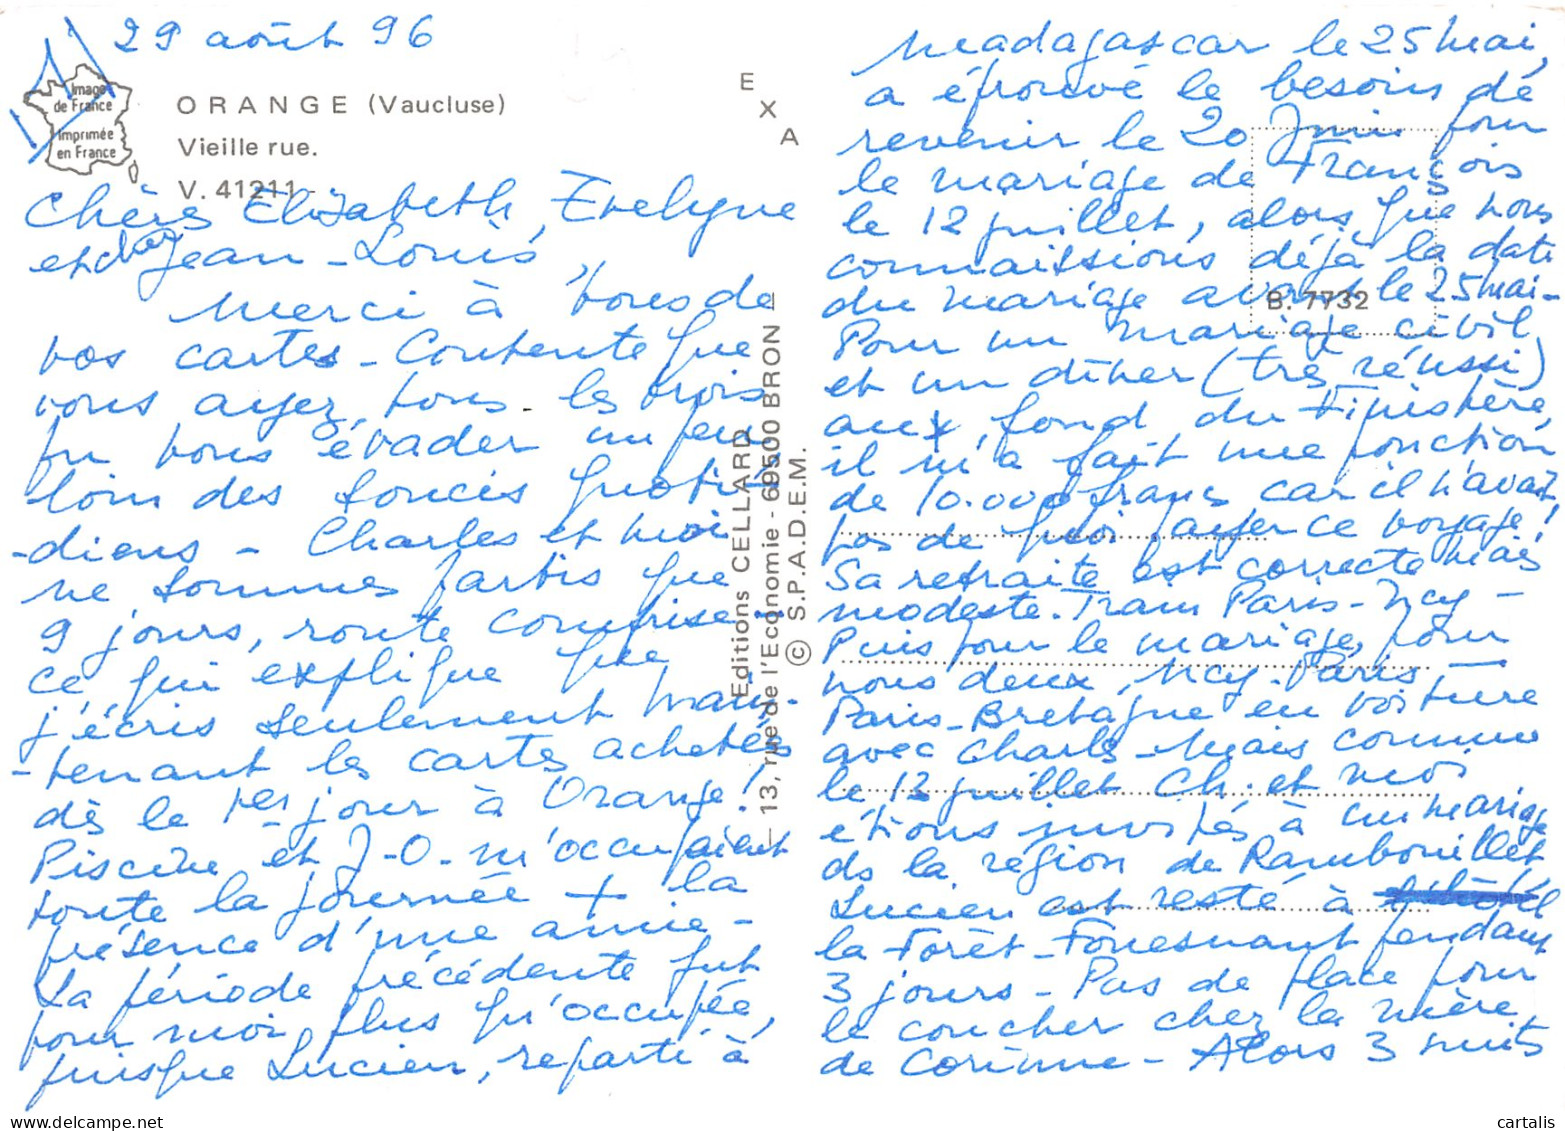 29 août 96
Image
de France
Imprimée
en France
ORANGE (Vaucluse)
Vieille rue.
V. 41211 -
EXA
Chères Elizabeth, Evelyne
et cher Jean-Louis,
Merci à tous de
vos cartes - Contente que
vous ayez, tous les trois
pu vous évader un peu
loin des soucis quoti-
-diens - Charles et moi
ne sommes partis que
9 jours, route comprise -
ce qui explique que
j'écris seulement main-
-tenant les cartes achetées
dès le 1er jour à Orange!
Piscine et J-O- m'occupaient
toute la journée + la
présence d'une amie -
La période précédente fut
pour moi plus qu'occupée,
puisque Lucien, reparti à
Editions CELLARD
13, rue de l'Economie - 69500 BRON -
© S.P.A.D.E.M.
B. 7732
Madagascar le 25 mai,
a éprouvé le besoin de
revenir le 20 Juin pour
le mariage de François
le 12 juillet, alors que nous
connaissions déjà la date
du mariage avant le 25 mai -
Pour un mariage civil,
et un dîner (très réussi)
au fond du Finistère,
il m'a fait une ponction
de 10.000 francs car il n'avait
pas de quoi payer ce voyage!
Sa retraite est correcte mais
modeste. Train Paris-Ncy -
Puis pour le mariage, pour
nous deux, Ncy-Paris -
Paris-Bretagne en voiture
avec Charles - Mais comme
le 13 juillet Ch. et moi
étions invités à un mariage
ds la région de Rambouillet
Lucien est resté à
la Forêt-Fouesnant pendant
3 jours - Pas de place pour
le coucher chez la mère
de Corinne - Alors 3 nuits
cartalis